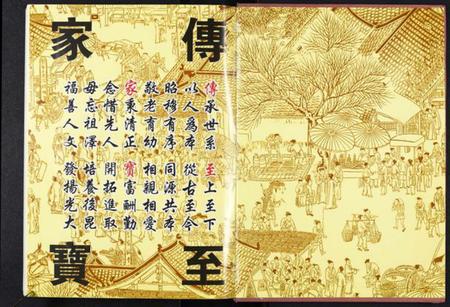 傳家
至寶
傳承世系 至上至下
以人為本 從古至今
昭穆有序 同源共本
敬老有幼 相親相愛
家秉清正 寶富酬勤
念惜先人 開拓進取
毋忘祖澤 培養後昆
福善人文 發揚光大